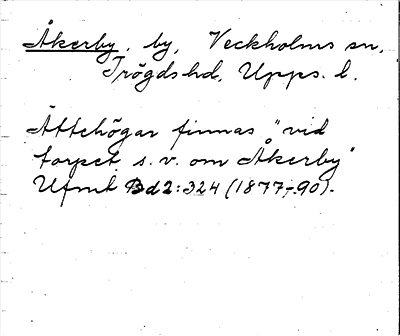 Åkerby, by, Veckholms sn,
Trögds hd, Upps. l.
Ättehögar finnas "vid
torpet s.v. om Åkerby"
Ufmt Bd 2:324 (1877-90).